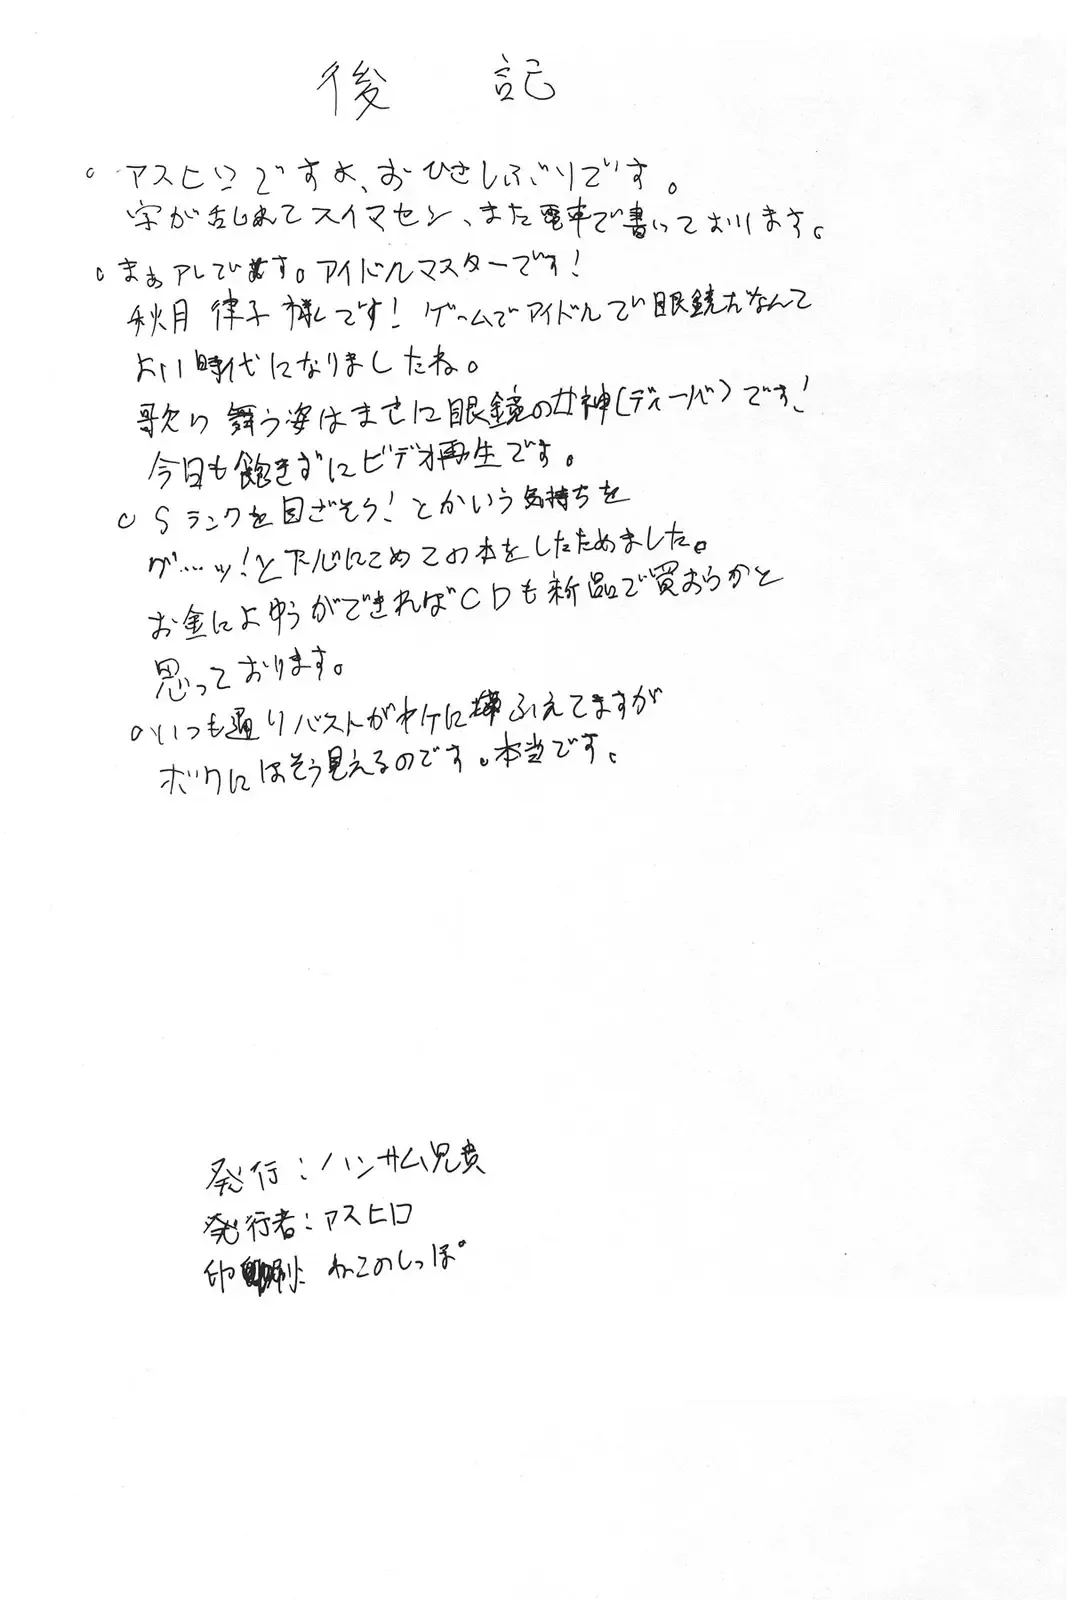 後 記
○ アスヒロですよ、おひさしぶりです。
字が乱れてスイマセン、また電車で書いております。
○ まぁアレです。アイドルマスターです!
秋月 律子様です! ゲームでアイドルで眼鏡だなんて
よい時代になりましたね。
歌い舞う姿はまさに眼鏡の女神(ディーバ)です!
今日も飽きずにビデオ再生です。
○ Sランクを目ざそう!とかいう気持ちを
グ…ッ!と下心にこめてこの本をしたためました。
お金によゆうができればCDも新品で買おうかと
思っております。
○ いつも通りバストがヤケにふえてますが
ボクにはそう見えるのです。本当です。
発行:ハンサム兄貴
発行者:アスヒロ
印刷:ねこのしっぽ